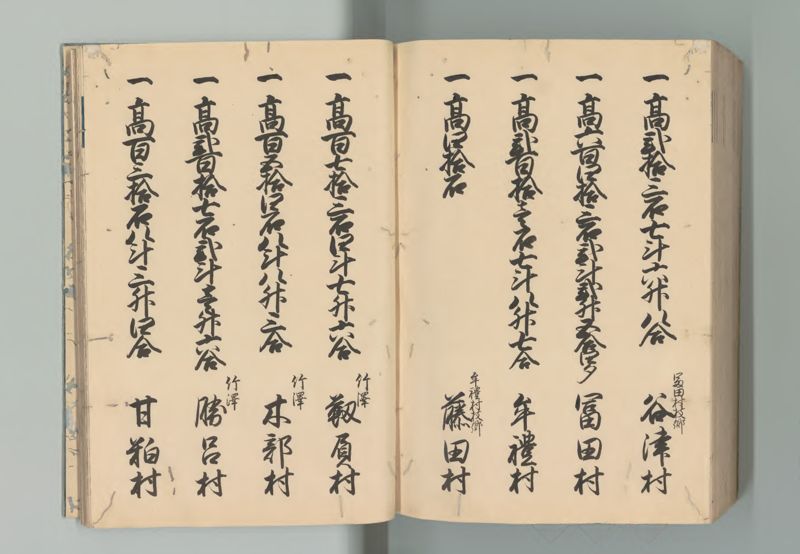 一高弐拾三石七斗六升八合
冨田村枝郷
谷津村
一高六百四拾三石弐斗弐升五合
冨田村
一高弐百拾壱石七斗八升七合
牟禮村
一高四拾石
牟禮村枝郷
藤田村
一高百七拾三石四斗七升六合
竹澤
靱負村
一高百五拾四石八斗八升三合
竹澤
木部村
一高弐百拾七石弐斗壱升六合
竹澤
勝呂村
一高百三拾石八斗三升四合
甘粕村